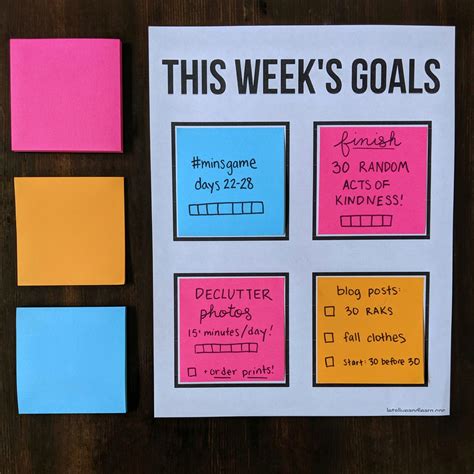 THIS WEEK'S GOALS
#minsgame
days 22-28
finish
30 RANDOM
ACTS OF
KINDNESS!
DECLUTTER
photos
15 minutes/day!
+ order prints!
blog posts:
30 RAKS
fall clothes
start: 30 before 30